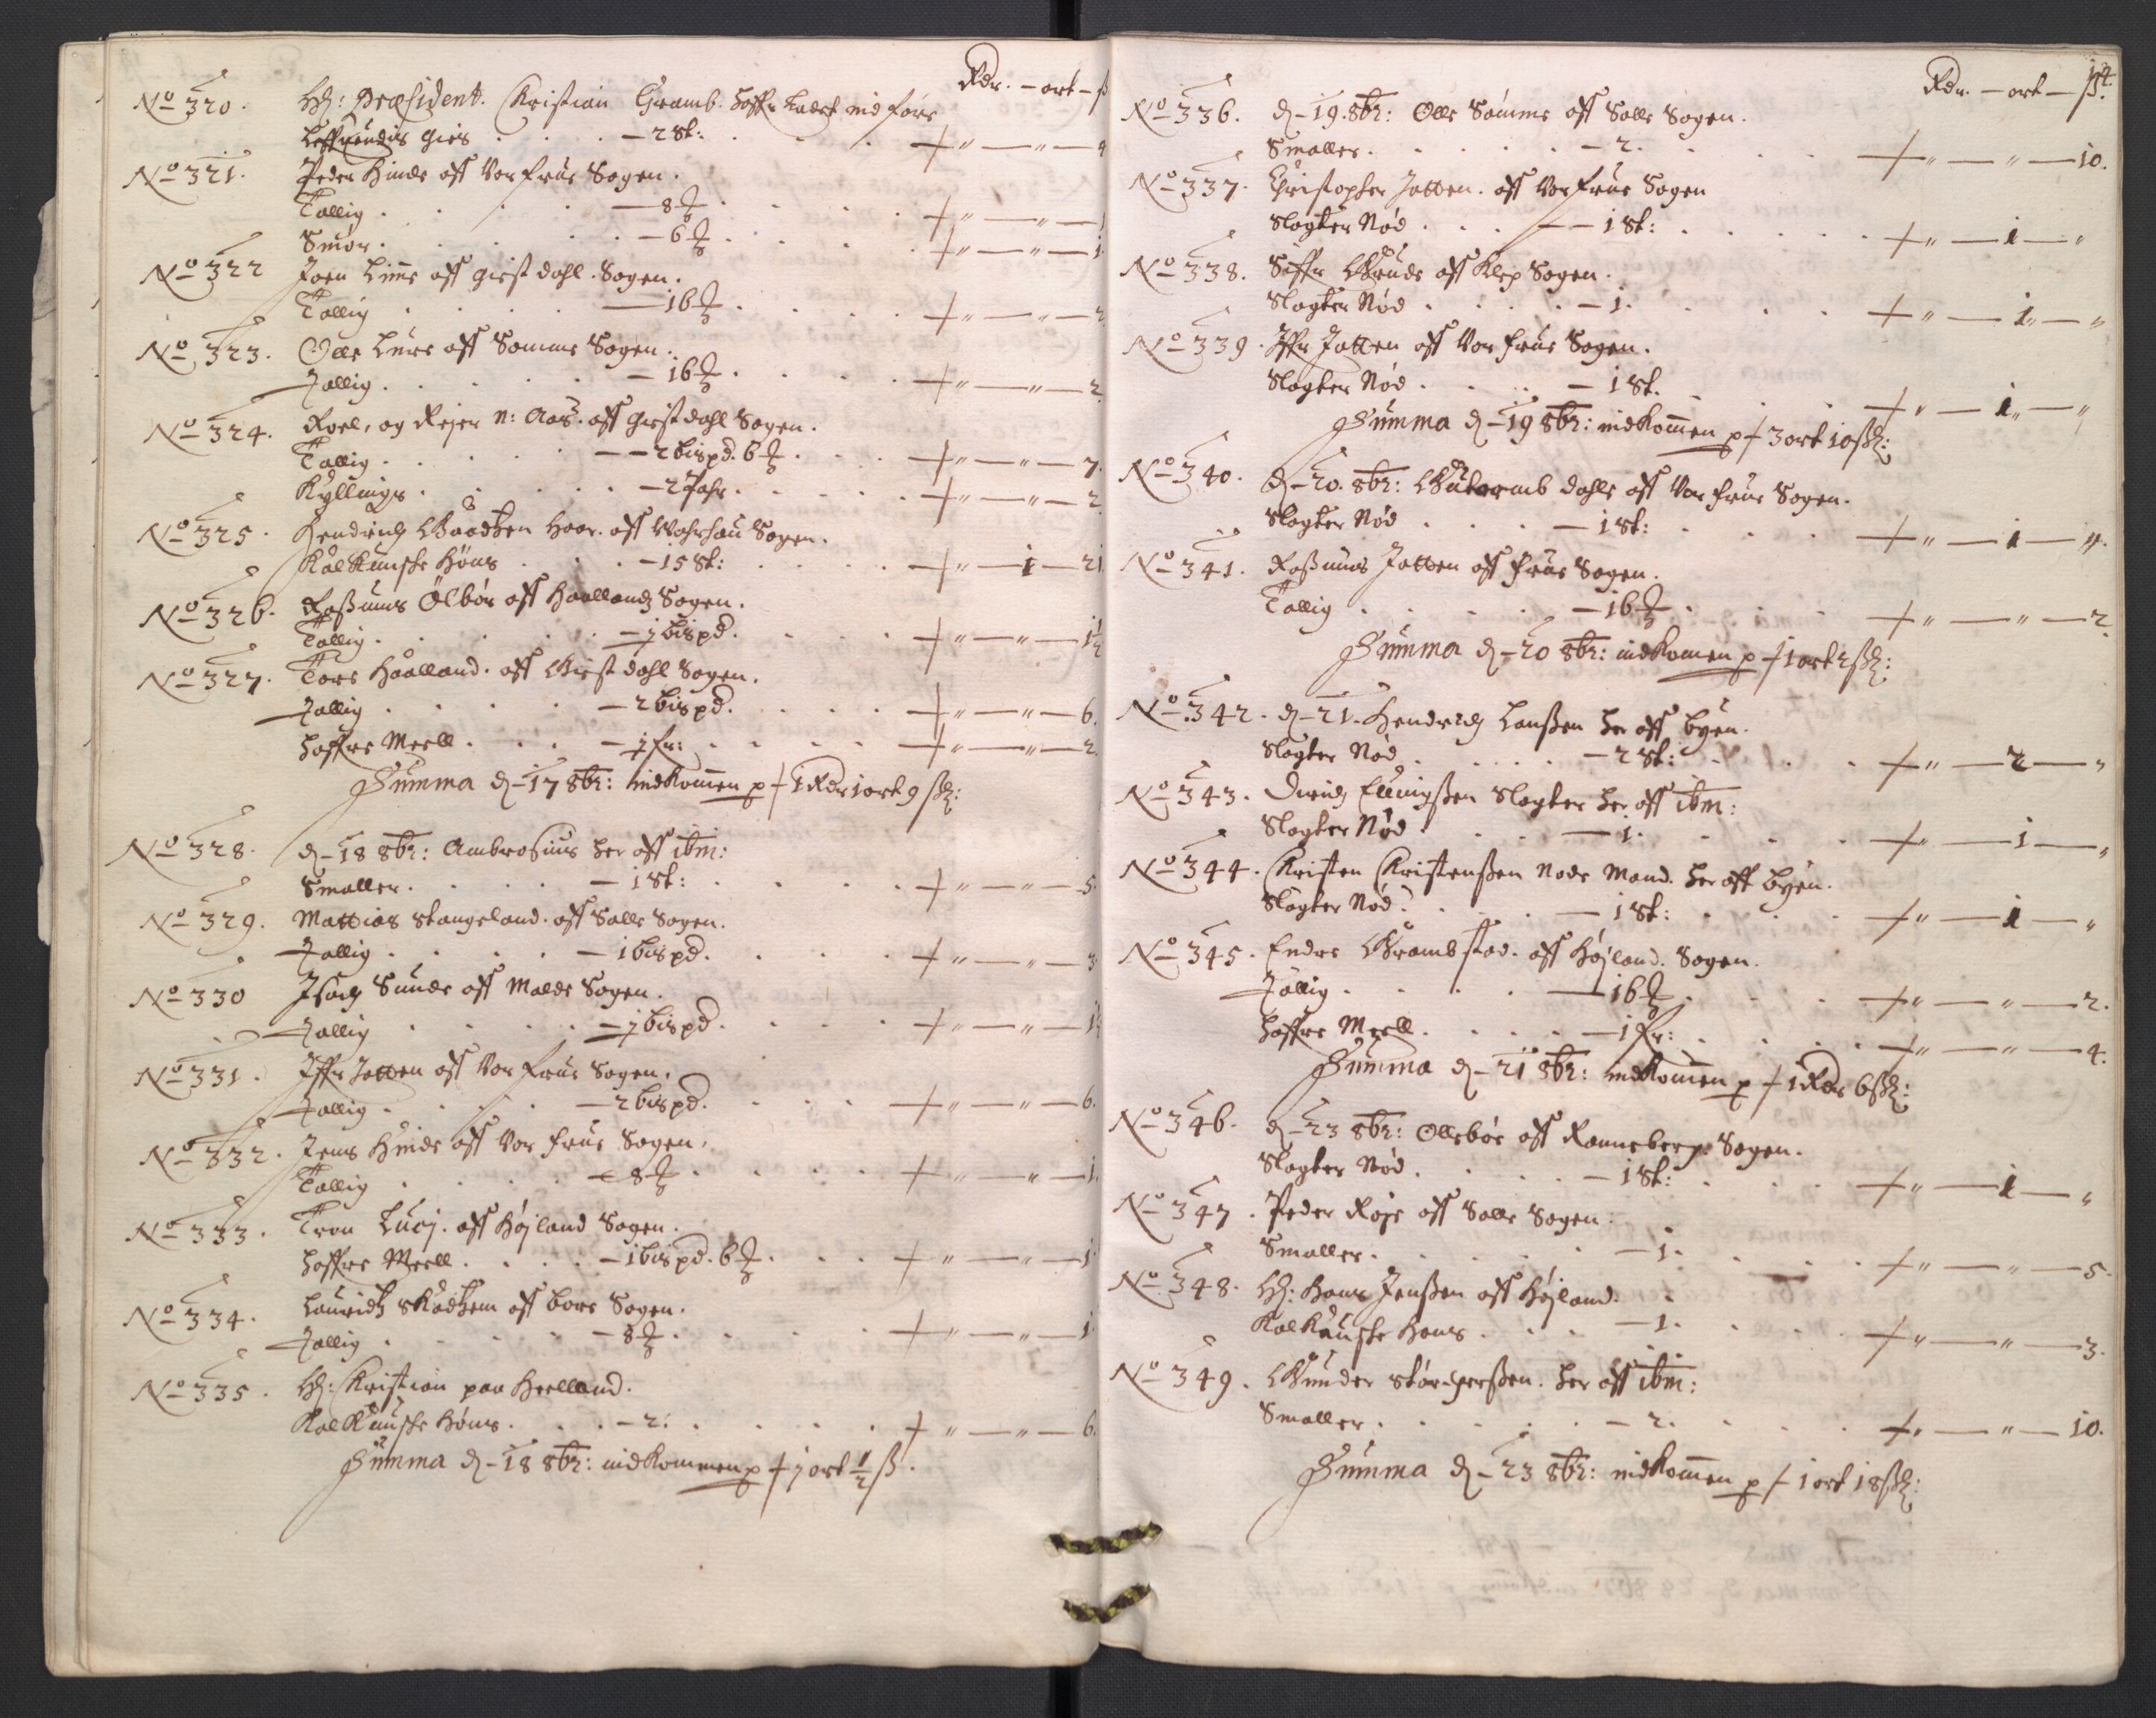 Rdr. – ort – ß
No 320. Hr: Præsident. Kristian Gramb. haffr ladet ind före
Leffuendis gies . . . – 2 St: . . + " — " — 4
No 321. Peder Hinde aff Vor frue Sogen.
Tallig . . . . — 8 ℔ . . . + " — " — 1
Smör . . . . – 6 ℔ . . . + " — " — 1
No 322 Joen Lime aff giestdahl. Sogen.
Tallig . . . . — 16 ℔ . . . + " — " — 2
No 323. Olle Lure aff Somme Sogen.
Tallig . . . . — 16 ℔ . . . + " — " — 2
No 324. Roel, og Rejer n: Aas. aff giestdahl Sogen.
Tallig . . . . – 2 bispd. 6 ℔ . . . + " — " — 7.
Kyllinge . . . . – 2 Pahr . . . + " — " — 2
No 325. Hendrich Baadtzen Hoar. aff Wahrhau Sogen.
Kalkunske Höns . . . – 15 St: . . . + " — 1 — 21
No 326. Rasmus Ölbör aff Haalland Sogen.
Tallig . . . . – ½ bispd. . . . + " — " — 1½
No 327. Tore Haalland. aff Giestdahl Sogen.
Tallig . . . . – 2 bispd. . . . + " — " — 6.
Haffre Meell . . . – ½ fr: . . . + " — " — 2.
Summa d – 17 8br: indkommen p + 1 Rdr 1 ort 9 ßz:
No 328. d – 18 8br: Ambrosius her aff ibm:
Smaller . . . . — 1 St: . . . + " — " — 5.
No 329. Mattias Stangeland. aff Salle Sogen.
Tallig . . . . — 1 bispd. . . . + " — " — 3
No 330 Isach Sunde aff Malde Sogen.
Tallig . . . . — ½ bispd. . . . + " — " — 1½
No 331. Iffr Jatten aff Vor frue Sogen.
Tallig . . . . — 2 bispd. . . . + " — " — 6.
No 332. Jens Hinde aff Vor frue Sogen.
Tallig . . . . – 8 ℔ . . . + " — " — 1.
No 333. Tron Lucj. aff Höjland Sogen.
Haffre Meell . . . – 1 bispd. 6 ℔ . . . + " — " — 1
No 334. Lauridtz Skadhem aff bore Sogen.
Tallig . . . . – 8 ℔ . . . + " — " — 1
No 335. Hr: Kristian paa Heelland.
Kalkunske Höns . . . – 2. . . . + " — " — 6.
Summa d – 18 8br: indkommen p + 1 ort ½ ß.
Rdr. – ort – ßz.
No 336. d – 19. 8br: Olle Somme aff Salle Sogen.
Smaller . . . . – 2. . . . + " — " — 10.
No 337. Christopher Jatten. aff Vor frue Sogen
Slagter Nød . . . — 1 St: . . . + " — 1 — "
No 338. Siffr Grude aff Klep Sogen.
Slagter Nød . . . . – 1. . . . + " — 1 — "
No 339. Iffr Jatten aff Vor frue Sogen.
Slagter Nød . . . — 1 St. . . . + " — 1 — "
Summa d – 19 8br: indkommen p + 3 ort 10 ßz:
No 340. d – 20. 8br: Gutormb dahle aff Vor frue Sogen.
Slagter Nød . . . — 1 St: . . . + " — 1 — "
No 341. Rasmus Jatten aff frue Sogen.
Tallig . . . . — 16 ℔ . . . + " — " — 2.
Summa d – 20 8br: indkomen p + 1 ort 2 ßz:
No 342. d – 21. Hendrich Lanßen her aff byen.
Slagter Nød . . . . – 2 St: . . . + " — 2 — "
No 343. Dirich Ellingßen Slagter her aff ibm:
Slagter Nød . . . — 1. . . . + " — 1 — "
No 344. Kristen Kristenßen Node Mand. her aff byen.
Slagter Nød . . . — 1 St: . . . + " — 1 — "
No 345. Endre Grambstad. aff Höjland. Sogen.
Tallig . . . . — 16 ℔ . . . + " — " — 2.
Haffre Meell . . . . — 1 Fr: . . . + " — " — 4.
Summa d – 21 8br: indkommen p + 1 Rdr 6 ßz:
No 346. d – 23 8br: Ollebör aff Renneberg. Sogen.
Slagter Nød . . . — 1 St: . . . + " — 1 — "
No 347. Peder Röje aff Salle Sogen.
Smaller . . . . — 1. . . . + " — " — 5.
No 348. Hr: Hans Jenßen aff Höjland.
Kalkunske Höns . . . — 1. . . . + " — " — 3.
No 349. Gunder Stör-Peerßen. her aff ibm:
Smaller . . . . — 2. . . . + " — " — 10.
Summa d – 23 8br: indkommen p + 1 ort 18 ßz: